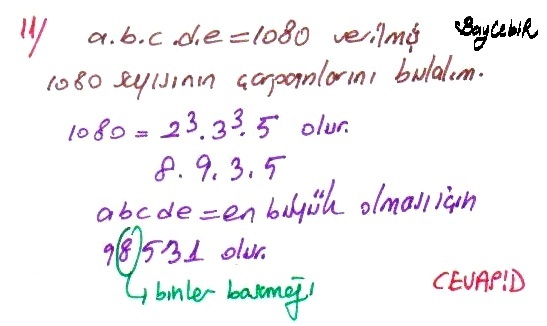 11/ a.b.c.d.e = 1080 verilmiş BayCebiR
1080 sayısının çarpanlarını bulalım.
1080 = 2³.3³.5 olur.
8.9.3.5
abcde = en büyük olması için
98531 olur.
↳ binler basamağı
CEVAP:D